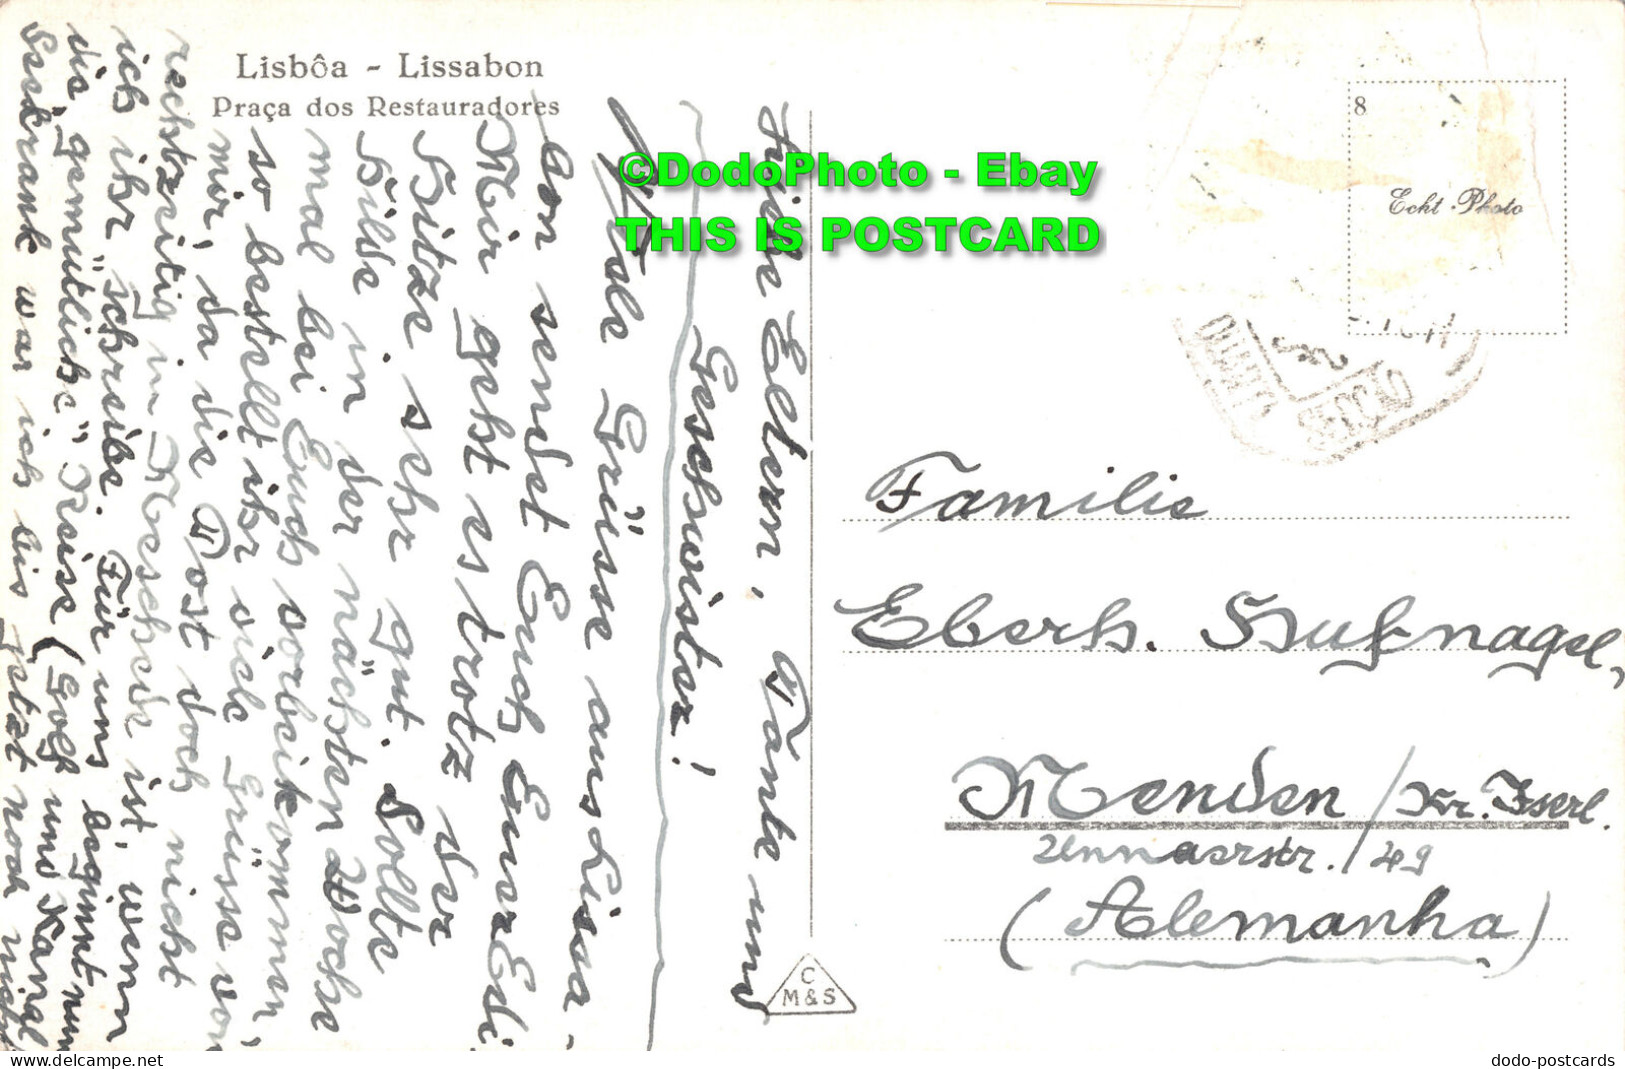 Lisbôa - Lissabon
Praça dos Restauradores
Liebe Eltern, Tante und
Geschwister!
Viele Grüsse aus Lissa-
bon sendet Euch Euer Edi.
Mir geht es trotz der
Hitze sehr gut. Sollte
Hilde in der nächsten Woche
mal bei Euch vorbeikommen,
so bestellt ihr viele Grüsse von
mir, da die Post doch nicht
rechtzeitig in Meschede ist, wenn
ich ihr schreibe. Für uns beginnt nun
die "gemütliche" Reise (Golf und Kanal
Seekrank war ich bis jetzt noch nicht
©DodoPhoto - Ebay
THIS IS POSTCARD
8
Echt Photo
SECCAO
Familie
Eberh. Hufnagel,
Menden / Kr. Iserl.
Unnaerstr. 49
(Alemanha)
C
M&S
www.delcampe.net
dodo-postcards